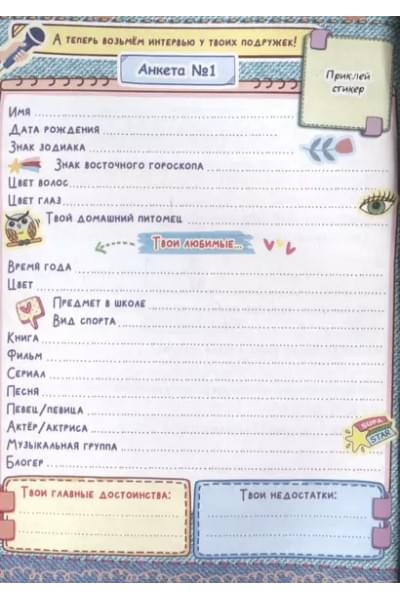 А теперь возьмём интервью у твоих подружек!
Анкета №1
Приклей
стикер
Имя
Дата рождения
Знак зодиака
Знак восточного гороскопа
Цвет волос
Цвет глаз
Твой домашний питомец
Твои любимые...
Время года
Цвет
Предмет в школе
Вид спорта
Книга
Фильм
Сериал
Песня
Певец/певица
Актёр/актриса
SUPER
STAR
Музыкальная группа
Блогер
Твои главные достоинства:
Твои недостатки: